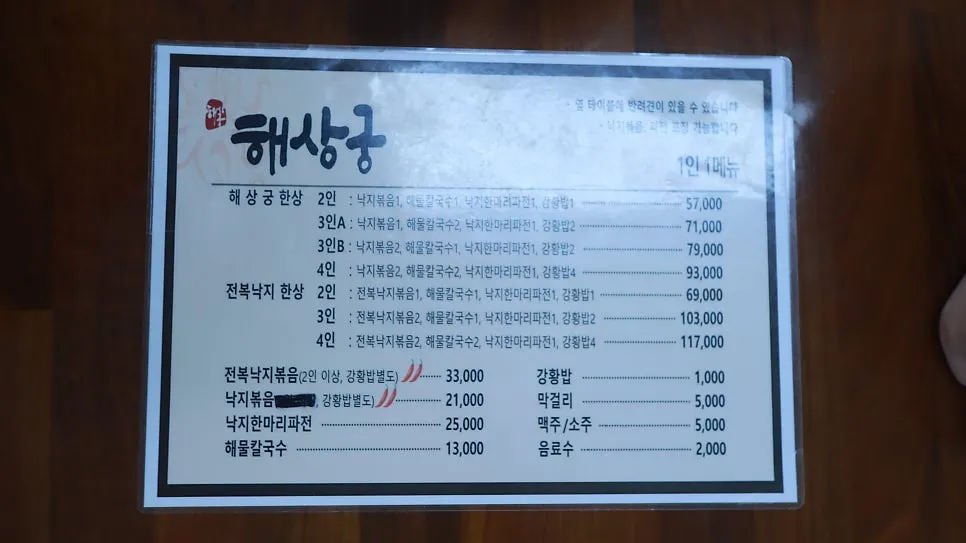 해상궁
· 옆 테이블에 반려견이 있을 수 있습니다
· 낙지볶음, 파전 포장 가능합니다
1인 1메뉴
해 상 궁 한상 2인 : 낙지볶음1, 해물칼국수1, 낙지한마리파전1, 강황밥1 57,000
3인A : 낙지볶음1, 해물칼국수2, 낙지한마리파전1, 강황밥2 71,000
3인B : 낙지볶음2, 해물칼국수1, 낙지한마리파전1, 강황밥2 79,000
4인 : 낙지볶음2, 해물칼국수2, 낙지한마리파전1, 강황밥4 93,000
전복낙지 한상 2인 : 전복낙지볶음1, 해물칼국수1, 낙지한마리파전1, 강황밥1 69,000
3인 : 전복낙지볶음2, 해물칼국수1, 낙지한마리파전1, 강황밥2 103,000
4인 : 전복낙지볶음2, 해물칼국수2, 낙지한마리파전1, 강황밥4 117,000
전복낙지볶음(2인 이상, 강황밥별도) 33,000
낙지볶음 , 강황밥별도) 21,000
낙지한마리파전 25,000
해물칼국수 13,000
강황밥 1,000
막걸리 5,000
맥주/소주 5,000
음료수 2,000